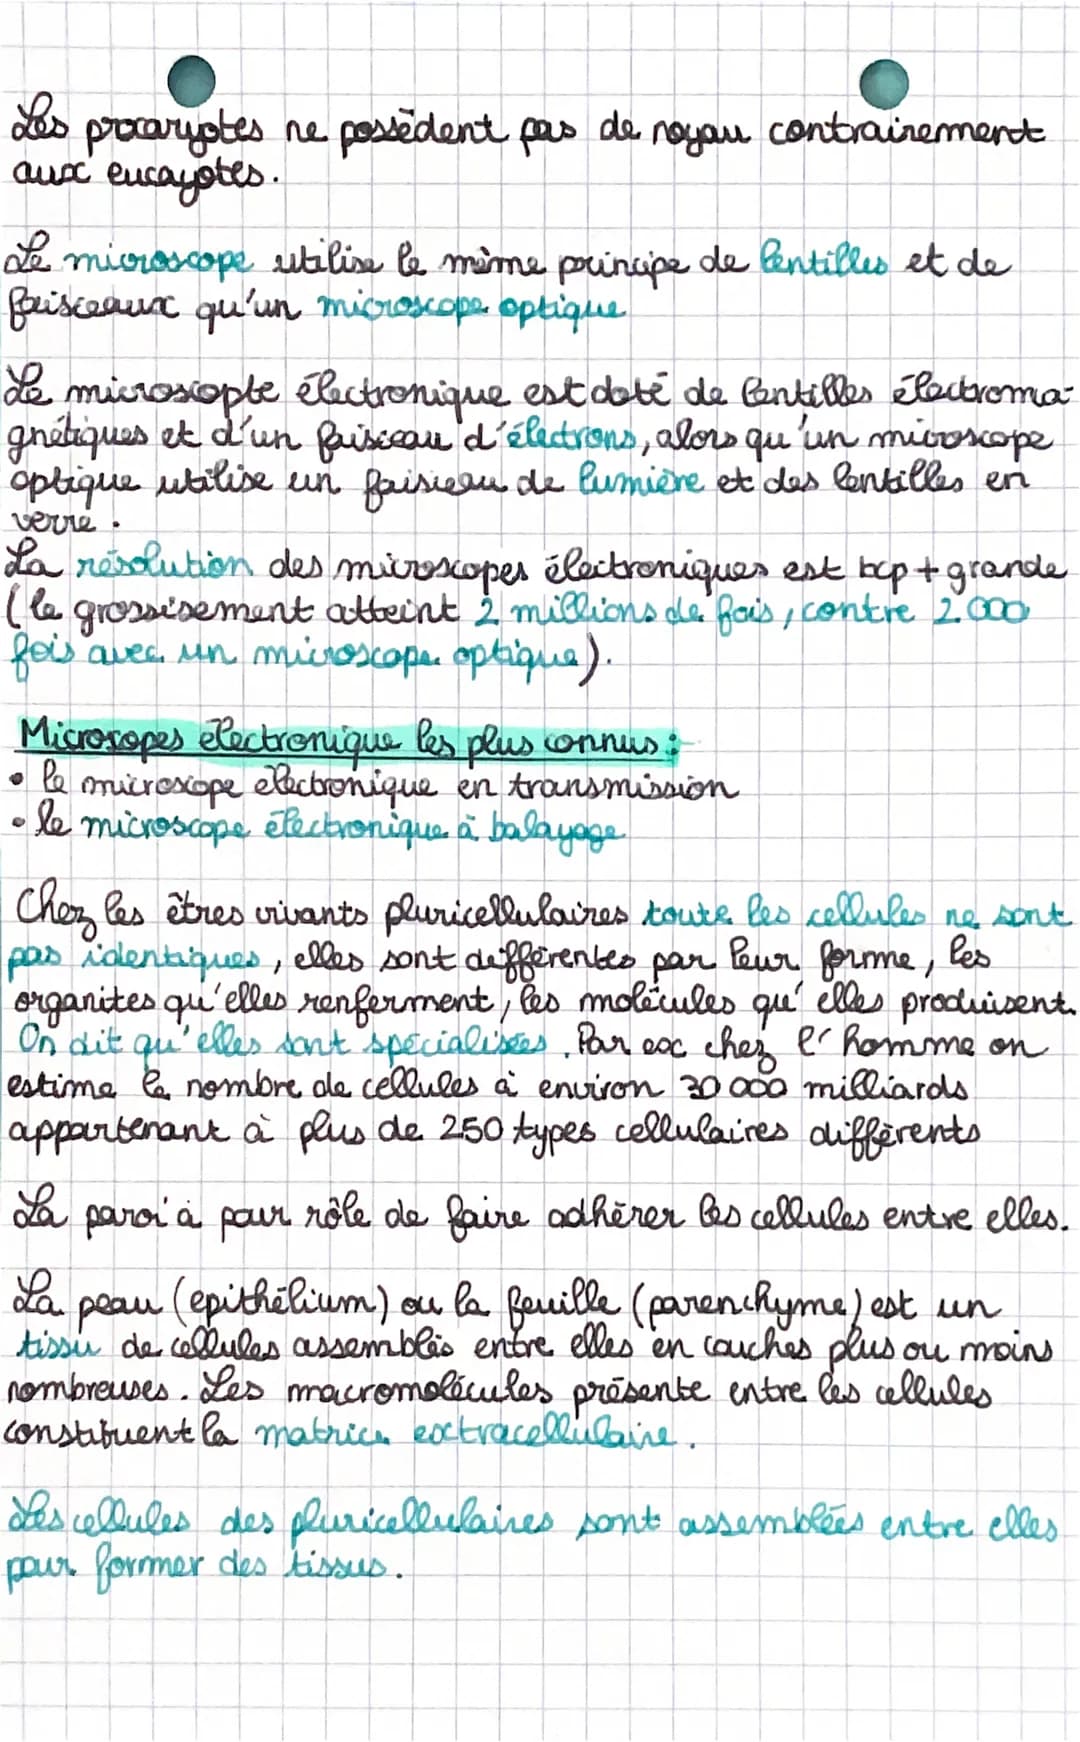 Les procaryotes ne possèdent pas de noyau contrairement
aux eucayotes.
Le microscope utilise le même principe de lentilles et de
faisceaux qu'un microscope optique
Le microscopte électronique est doté de lentilles électroma-
gnétiques et d'un faisceau d'électrons, alors qu'un microscope
optique utilise un faisieau de lumière et des lentilles en
verre.
La résolution des microscopes électroniques est bcp + grande
(le grossisement atteint 2 millions de fois, contre 2.000
fois avec un microscope optique).
Microsopes électronique les plus connus :
• le microscope électronique en transmission
• le microscope électronique à balayage
Chez les êtres vivants pluricellulaires toute les cellules ne sont
pas identiques, elles sont différentes par leur forme, les
organites qu'elles renferment, les molécules qu'elles produisent.
On dit qu'elles sont spécialisées. Par ex chez l'homme on
estime le nombre de cellules à environ 30 000 milliards
appartenant à plus de 250 types cellulaires différents
La paroi à pour rôle de faire adhérer les cellules entre elles.
La peau (epithélium) ou la feuille (parenchyme) est un
tissu de cellules assemblés entre elles en couches plus ou moins
nombreuses. Les macromolécules présente entre les cellules
constituent la matrice extracellulaire.
Les cellules des pluricellulaires sont assemblées entre elles
pour former des tissus.